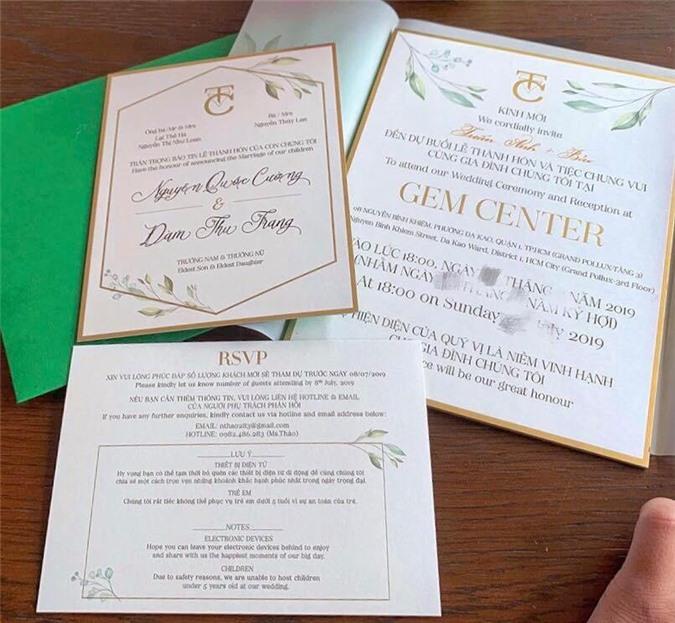 TC
Ông bà/Mr & Mrs
Lại Thế Hà
Nguyễn Thị Như Loan
Bà / Mrs
Nguyễn Thúy Lan
TRÂN TRỌNG BÁO TIN LỄ THÀNH HÔN CỦA CON CHÚNG TÔI
Have the honour of announcing the Marriage of our children
Nguyễn Quốc Cường
&
Đàm Thu Trang
TRƯỞNG NAM & TRƯỞNG NỮ
Eldest Son & Eldest Daughter
TC
KÍNH MỜI
We cordially invite
ĐẾN DỰ BUỔI LỄ THÀNH HÔN VÀ TIỆC CHUNG VUI
CÙNG GIA ĐÌNH CHÚNG TÔI TẠI
To attend our Wedding Ceremony and Reception at
GEM CENTER
NGUYỄN BỈNH KHIÊM, PHƯỜNG ĐA KAO, QUẬN 1, TP.HCM (GRAND POLLUX/TẦNG 3)
Nguyen Binh Khiem Street, Da Kao Ward, District 1, HCM City (Grand Pollux-3rd Floor)
VÀO LÚC 18:00, NGÀY THÁNG NĂM 2019
(NHẰM NGÀY THÁNG NĂM KỶ HỢI)
At 18:00 on Sunday 2019
HIỆN DIỆN CỦA QUÝ VỊ LÀ NIỀM VINH HẠNH
GIA ĐÌNH CHÚNG TÔI
will be our great honour
RSVP
XIN VUI LÒNG PHÚC ĐÁP SỐ LƯỢNG KHÁCH MỜI SẼ THAM DỰ TRƯỚC NGÀY 08/07/2019
Please kindly let us know number of guests attending by 8th July, 2019
NẾU BẠN CẦN THÊM THÔNG TIN, VUI LÒNG LIÊN HỆ HOTLINE & EMAIL
CỦA NGƯỜI PHỤ TRÁCH PHẢN HỒI
If you have any further enquiries, kindly contact us via hotline and email address below:
EMAIL: nthao2187@gmail.com
HOTLINE: 0982.486.283 (Ms.Thảo)
LƯU Ý
THIẾT BỊ ĐIỆN TỬ
Hy vọng bạn có thể tạm thời bỏ quên các thiết bị điện tử di động để cùng chúng tôi
chia sẻ một cách trọn vẹn những khoảnh khắc hạnh phúc nhất trong ngày trọng đại.
TRẺ EM
Chúng tôi rất tiếc không thể phục vụ trẻ em dưới 5 tuổi vì sự an toàn của trẻ.
NOTES
ELECTRONIC DEVICES
Hope you can leave your electronic devices behind to enjoy
and share with us the happiest moments of our big day.
CHILDREN
Due to safety reasons, we are unable to host children
under 5 years old at our wedding.